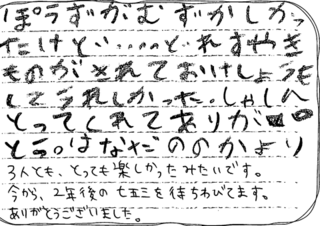 ぽうずがむずかしかっ
たけど、‥‥‥ど、れすやき
ものがきれておけしょうも
してうれしかった。しゃしん
とってくれてありが
とう。はなだののかより
3人とも、とっても楽しかったみたいです。
今から、2年後の七五三を待ちわびてます。
ありがとうございました。